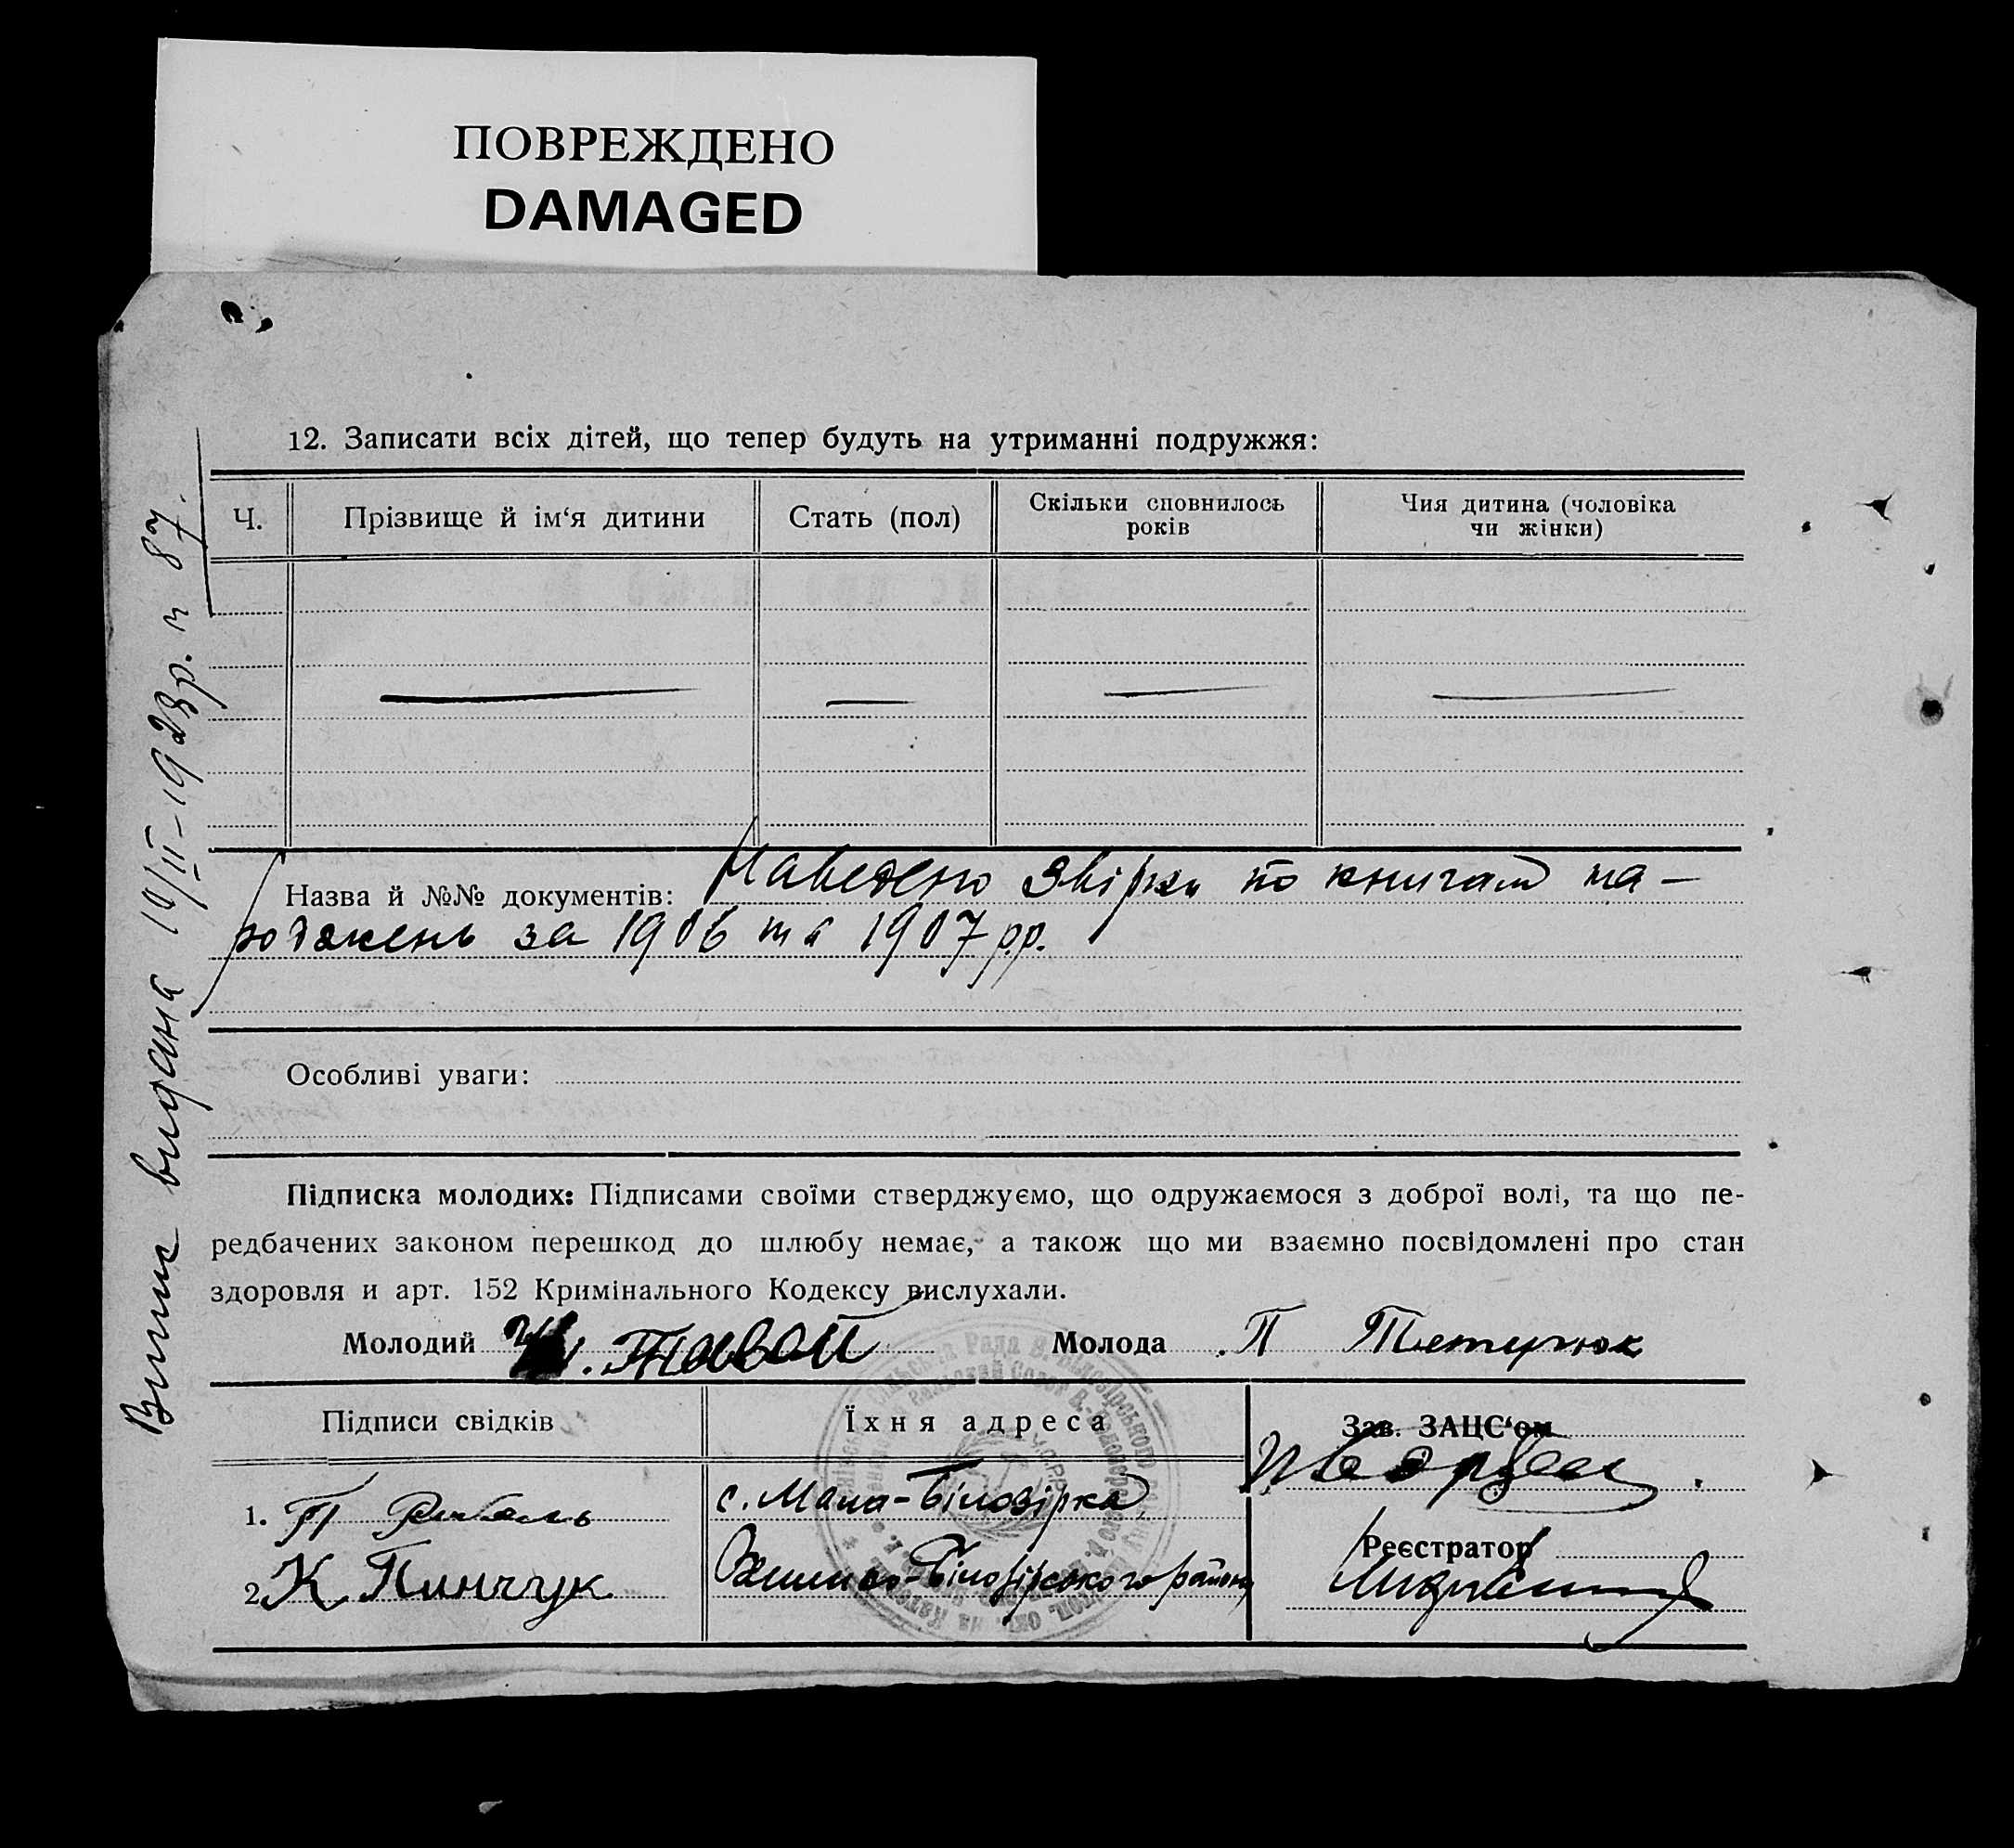 ПОВРЕЖДЕНО
DAMAGED
12. Записати всіх дітей, що тепер будуть на утриманні подружжя:
Ч.
Прізвище й ім‘я дитини
Стать (пол)
Скільки сповнилось
років
Чия дитина (чоловіка
чи жінки)
Назва й №№ документів: Наведено звірки по книгам на-
роджень за 1906 та 1907 р.р.
Особливі уваги:
Підписка молодих: Підписами своїми стверджуємо, що одружаємося з доброї волі, та що пе-
редбачених законом перешкод до шлюбу немає, а також що ми взаємно посвідомлені про стан
здоровля и арт. 152 Кримінального Кодексу вислухали.
Молодий
Молода П Тетучюк
Підписи свідків
Їхня адреса
Зав. ЗАЦС‘ом
1. П
с. Мала-Білозірка
2. К Пинчук
-Білозірського району
Реєстратор
Випис видана 10/II-1928р. n 87.